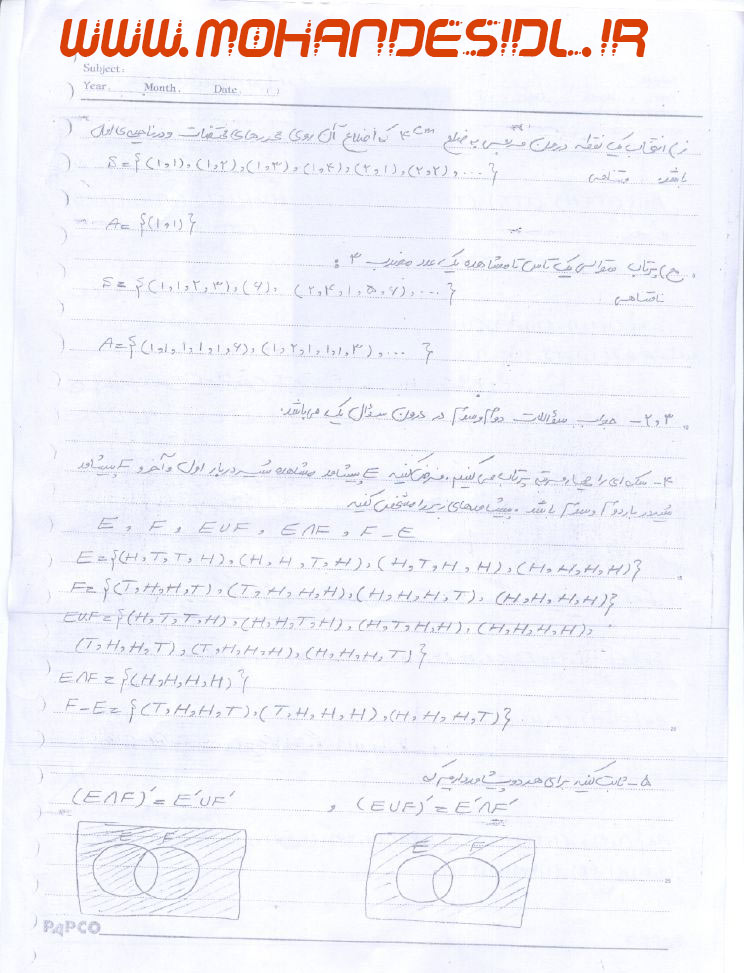 WWW.MOHANDESIDL.IR
Subject:
Year. Month. Date. ( )
ز) انتخاب یک نقطه درون مربعی به ضلع ۴cm که اضلاع آن روی محورهای مختصات و در ناحیه‌ی اول
باشد. متناهی S={(۱,۱),(۱,۲),(۱,۳),(۱,۴),(۲,۱),(۲,۲),...}
A={(۱,۱)}
ح) پرتاب متوالی یک تاس تا مشاهده یک عدد مضرب ۳ :
نامتناهی S={(۱,۱,۲,۳),(۶), (۲,۴,۱,۵,۶),...}
A={(۱,۱,۱,۱,۱,۶),(۱,۲,۱,۱,۱,۳),... }
۲,۳- جواب سؤالات دوم و سوم در درون سؤال یک می‌باشد.
۴- سکه‌ای را چهار مرتبه پرتاب می‌کنیم. فرض کنید E پیشامد مشاهده شیر در بار اول و آخر و F پیشامد
شیر در بار دوم و سوم باشد. پیشامدهای زیر را مشخص کنید
E , F , E∪F , E∩F , F-E
E={(H,T,T,H),(H,H,T,H),(H,T,H,H),(H,H,H,H)}
F={(T,H,H,T),(T,H,H,H),(H,H,H,T),(H,H,H,H)}
E∪F={(H,T,T,H),(H,H,T,H),(H,T,H,H),(H,H,H,H),
(T,H,H,T),(T,H,H,H),(H,H,H,T)}
E∩F={(H,H,H,H)}
F-E={(T,H,H,T),(T,H,H,H),(H,H,H,T)}
20
۵- ثابت کنید برای هر دو پیشامد داریم که
(E∩F)′=E′∪F′ , (E∪F)′=E′∩F′
E F E F
25
PAPCO